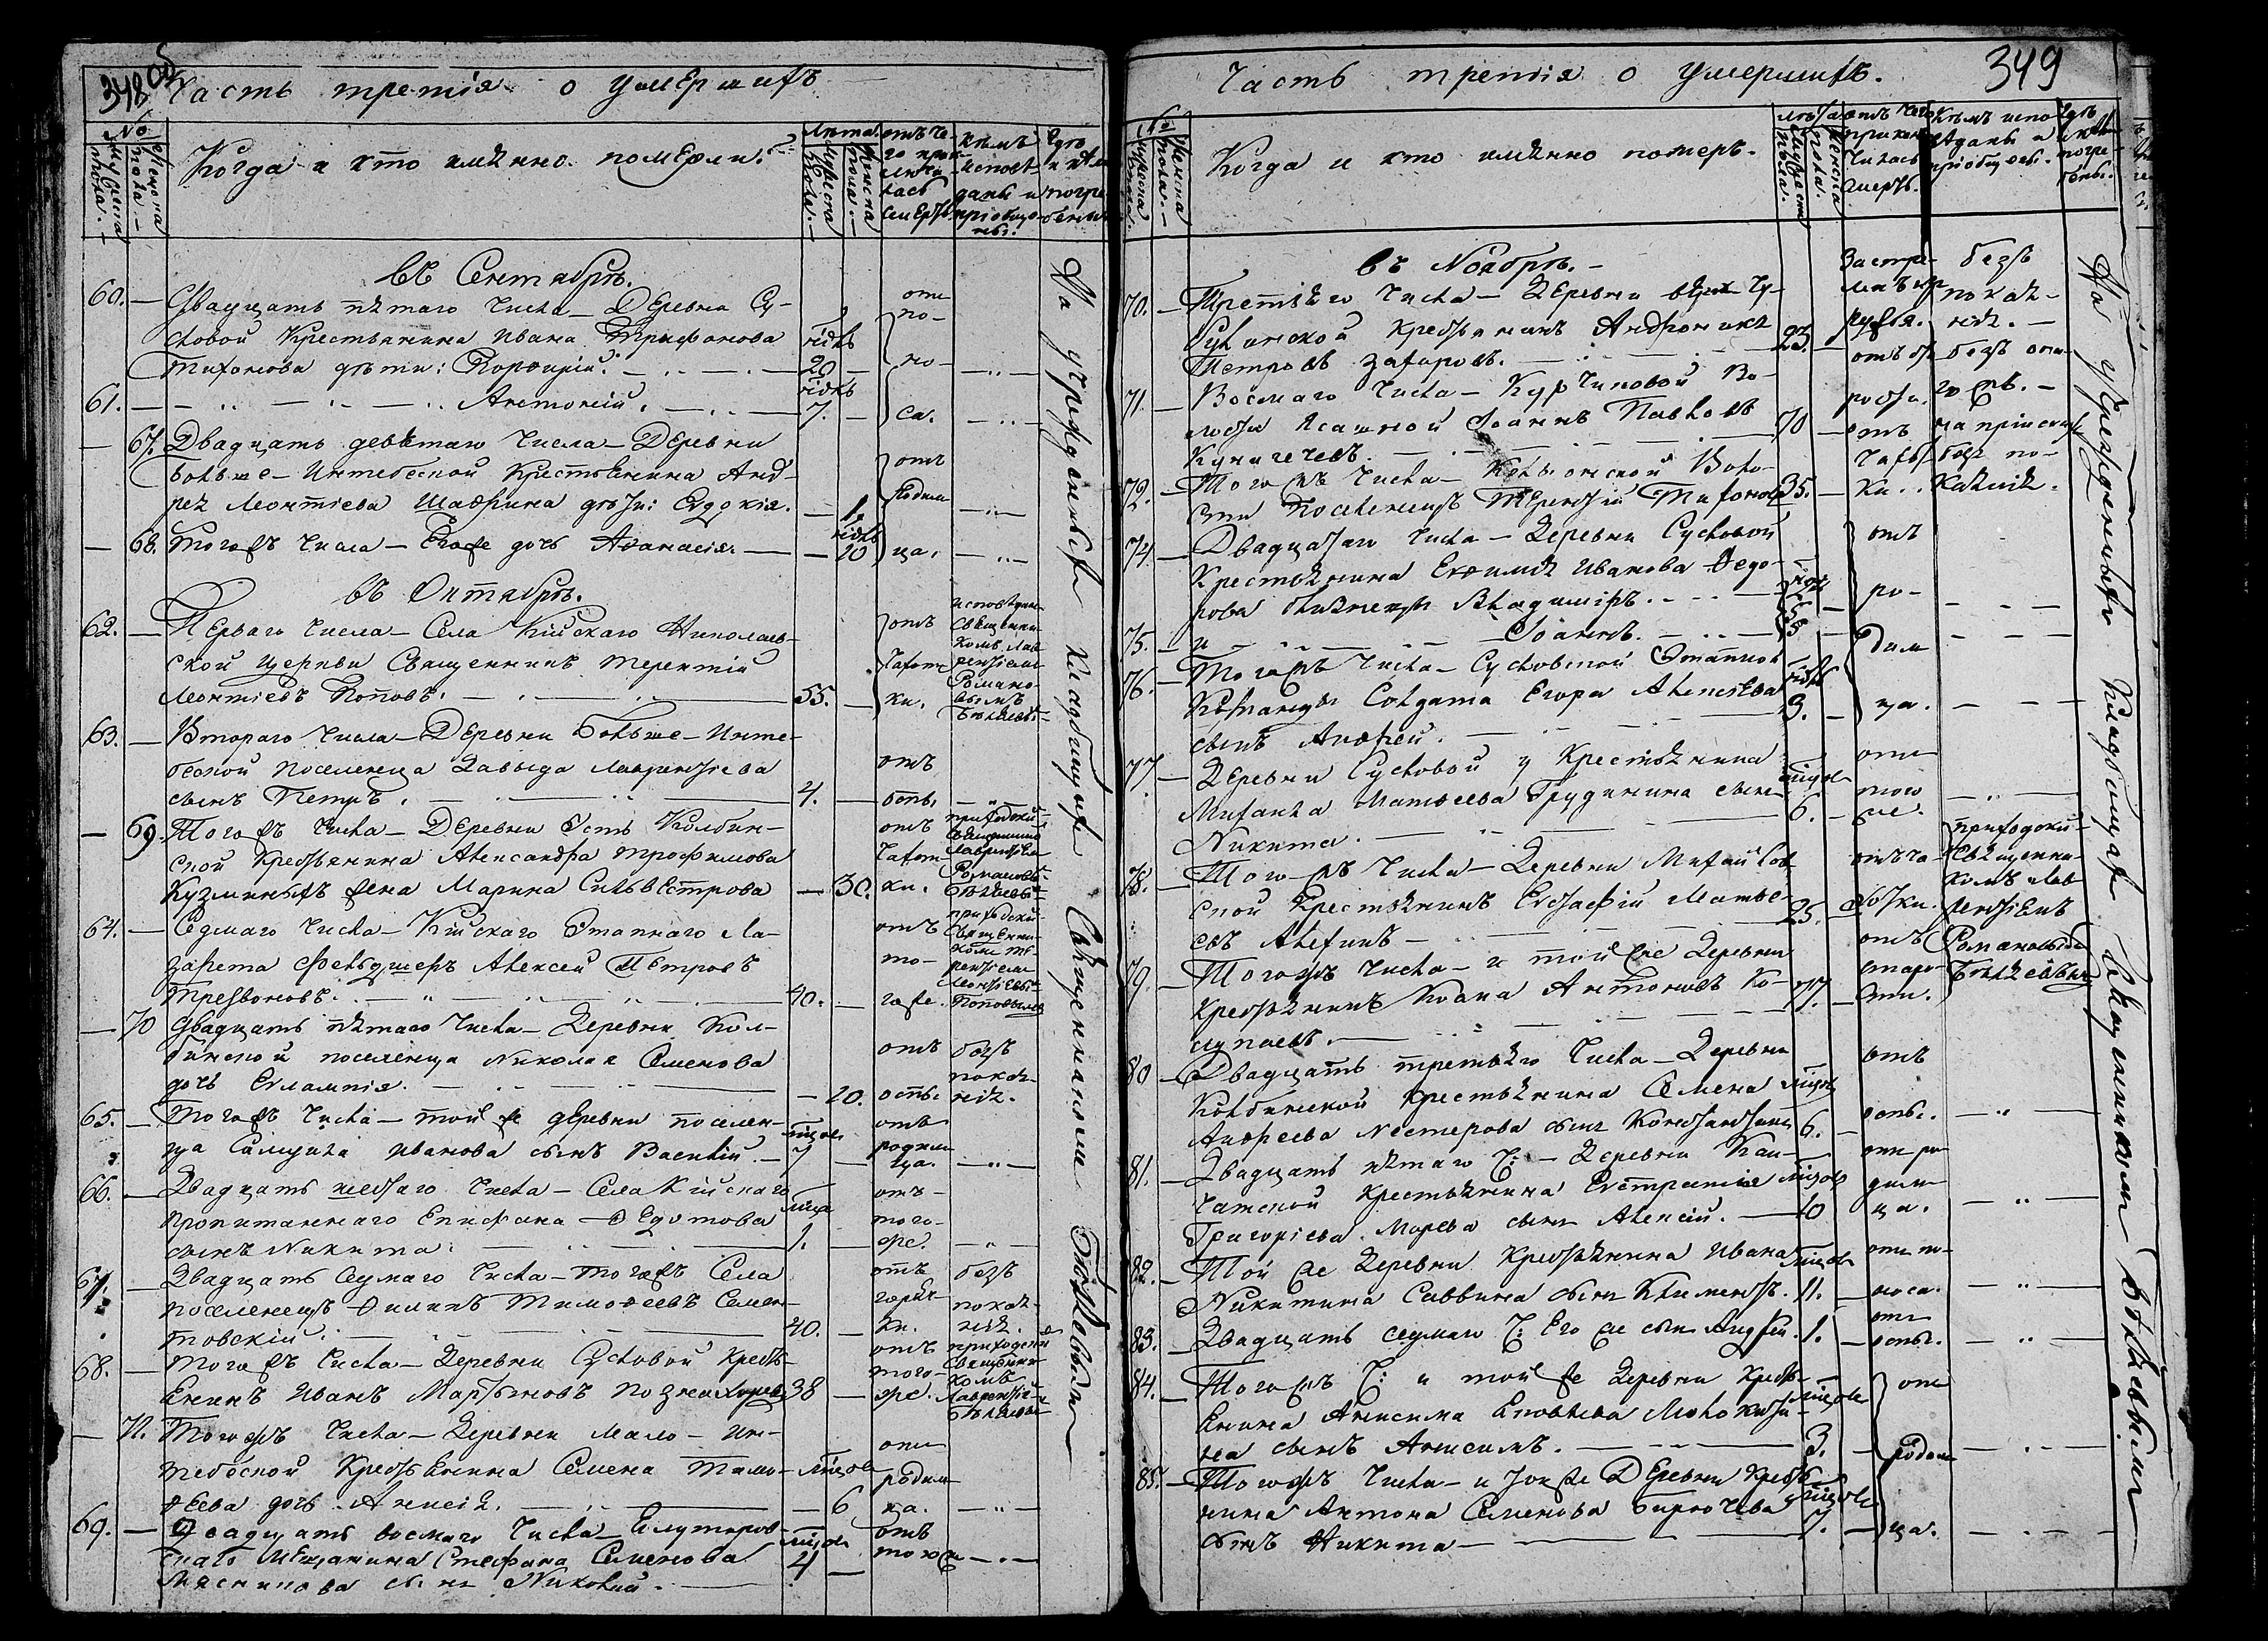 348 об
Часть третія о умершихъ
№
мужеска пола.
женска пола.
Когда и кто имѣнно помѣрли.
Лѣта.
мужеска пола.
женска пола.
отъ че-
го приклю-
чилась
смерть
кѣмъ
исповѣ-
даны и
пріобще-
ны.
Гдѣ
и кѣмъ
погре-
бены
Въ Сентябрѣ.
60. — Двадцать пятаго числа — Деревни Су-
словой Крестьянина Ивана Трифонова
Тихонова дѣти: Порфирій. 20 —
61. — Антоній. 7. —
отъ
по-
но-
са.
— 67. Двадцать девятаго числа — Деревни
Больше-Интебеской Крестьянина Анд-
рея Леонтіева Шаврина дочь: Евдокія. — 1.
— 68. Того жъ числа — Его же дочь Аѳанасія — 10
отъ
родим
ца.
Въ Октябрѣ.
62. — Перваго числа — Села Кійскаго Николаев-
ской Церкви Священникъ Терентій
Леонтіевъ Поповъ. 55. —
отъ
чахот
ки.
исповѣдан
Священни-
комъ Лав-
рентіемъ
Романо-
вымъ
Бѣляевы-
63. — Втораго числа — Деревни Больше-Инте-
беской поселенца Давыда Лаврентіева
сынъ Петръ. 4. —
отъ
— 69. Того жъ числа — Деревни Усть Колбин-
ской Крестьянина Александра Трофимова
Кузминыхъ жена Марина Сильвестрова — 30.
отъ
чахот-
ки.
приходскій
Священнико
Лаврентіем
Романовы-
Бѣляевы-
64. — Седмаго числа — Кійскаго Этапнаго Ла-
зарета Фельдшеръ Алексей Петровъ
Трезвоновъ. 40. —
отъ
то-
гоже.
приходскій
Священни-
комъ Те-
рентіем
Леонтіевы-
Поповымъ
— 70 Двадцать пятаго числа — Деревни Кол-
бинской поселенца Николая Семенова
дочь Евлампія. — 20.
отъ
оспы
безъ
покая-
нія.
65. — Того жъ числа — той же деревни поселен-
ца Самуила Иванова сынъ Василій. — 7 —
отъ
родим
ца.
66. — Двадцать шестаго числа — Села Кійскаго
пропитаннаго Епифана Ѳедотова
сынъ Никита. 1. —
отъ-
того-
же.
67. — Двадцать седмаго числа — того жъ Села
поселенецъ Филипъ Тимофеевъ Семен-
товскій. 40. —
отъ
горяч-
ки.
безъ
покая-
нія.
68. — Того жъ числа — Деревни Сусловой Кресть-
енинъ Иванъ Мартыновъ 38 —
отъ
того-
же.
приходски
Священни-
комъ
Лаврентій-
Бѣляевы-
— 71. Того жъ числа — Деревни Мало-Ин-
тебеской Крестьенина Семена Тимо-
феева дочь Анисія. — 6
отъ
родим
ца.
69. — Двадцать восмаго числа — Ялуторов-
скаго Мѣщанина Стефана Семенова
Мясникова сынъ Николай. 4 —
отъ
того ж
На учрежденныхъ Кладбищахъ Священникомъ Бѣляевымъ
349
Часть третія о умершихъ.
№
мужеска пола.
женска пола.
Когда и кто имѣнно померъ.
Лѣта
мужеска пола.
женска пола.
отъ чего
приклю-
чилась
смерть.
Кѣмъ испо-
вѣданы и
пріобщены.
Гдѣ
и кѣм
погре-
бены.
Въ Ноябрѣ.
70. — Третьяго числа — Деревни
Крестьянинъ Андроникъ
Петровъ Захаровъ. 23. —
Застре-
ружья.
безъ
покая-
нія.
71. — Восмаго числа — Во-
лости Ясашной Іоаннъ Павловъ
70 —
безъ она-
го жъ.
72. — Того жъ числа — Воло-
сти Поселенецъ Терентій Тихонов 35. —
отъ
чахот
ки.
на пріиск
безъ по-
каянія.
74. — Двадцатаго числа — Деревни Сусловой
Крестьянина Евфимія Иванова Федо-
рова близнецы Владиміръ.
75. — и Іоаннъ.
76. — Того жъ числа — Сусловской Этапной
Команды Солдата Егора Алексѣева
сынъ Андрей. 3. —
отъ
ро-
дим
ца.
77. — Деревни Сусловой у Крестьянина
Михаила Матвеева Грудинина сынъ
Никита. 6. —
отъ
того
же.
78. — Того жъ числа — Деревни Михайлов
ской Крестьянинъ Евстафій Матве-
евъ Алехинъ 25. —
отъ ча-
хотки.
приходскій
Священни-
комъ Лав
рентіемъ
Романовымъ
Бѣляевымъ
79. — Того жъ числа — и той же Деревни
Крестьянинъ Антоновъ
77. —
отъ
старо-
сти.
80 — Двадцать третьяго числа — Деревни
Колбинской Крестьянина Семена
Андреева Нестерова сынъ Константинъ 6. —
отъ
оспы.
81. — Двадцать пятаго Ч: — Деревни
Крестьянина Евстратія
Григоріева Марьева сынъ Алексій. — 10
отъ ро
дим
ца.
82. — Той же Деревни Крестьянина Ивана
Никитина Саввина сынъ Климентъ. 11. —
отъ по-
носа.
83. — Двадцать седмаго Ч: Его же сынъ Андрей. 1. —
отъ
оспы.
84. — Того жъ Ч: и той же Деревни Кресть-
енина Анисима
сынъ Анисимъ. 3. —
85. — Того жъ числа — и той же Деревни Кресть
нина Антона Семенова Бирючева
сынъ Никита — 7. —
отъ
родим
ца.
На учрежденныхъ Кладбищахъ Священникомъ Бѣляевымъ